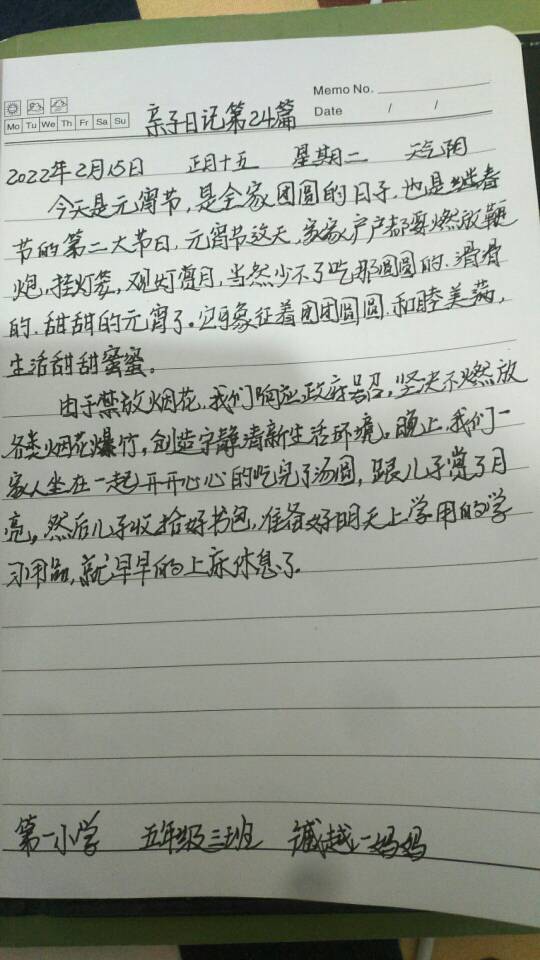 Memo No.
Mo Tu We Th Fr Sa Su
Date / /
亲子日记第24篇
2022年2月15日 正月十五 星期二 天气阴
今天是元宵节，是全家团圆的日子，也是继春
节的第二大节日，元宵节这天，家家户户都要燃放鞭
炮，挂灯笼，观灯赏月，当然少不了吃那圆圆的、滑滑
的、甜甜的元宵了。它象征着团团圆圆，和睦美满，
生活甜甜蜜蜜。
由于禁放烟花，我们响应政府号召，坚决不燃放
各类烟花爆竹，创造宁静清新生活环境。晚上，我们一
家人坐在一起开开心心的吃完了汤圆，跟儿子赏了月
亮，然后儿子收拾好书包，准备好明天上学用的学
习用品，就早早的上床休息了。
第一小学 五年级三班 越一妈妈